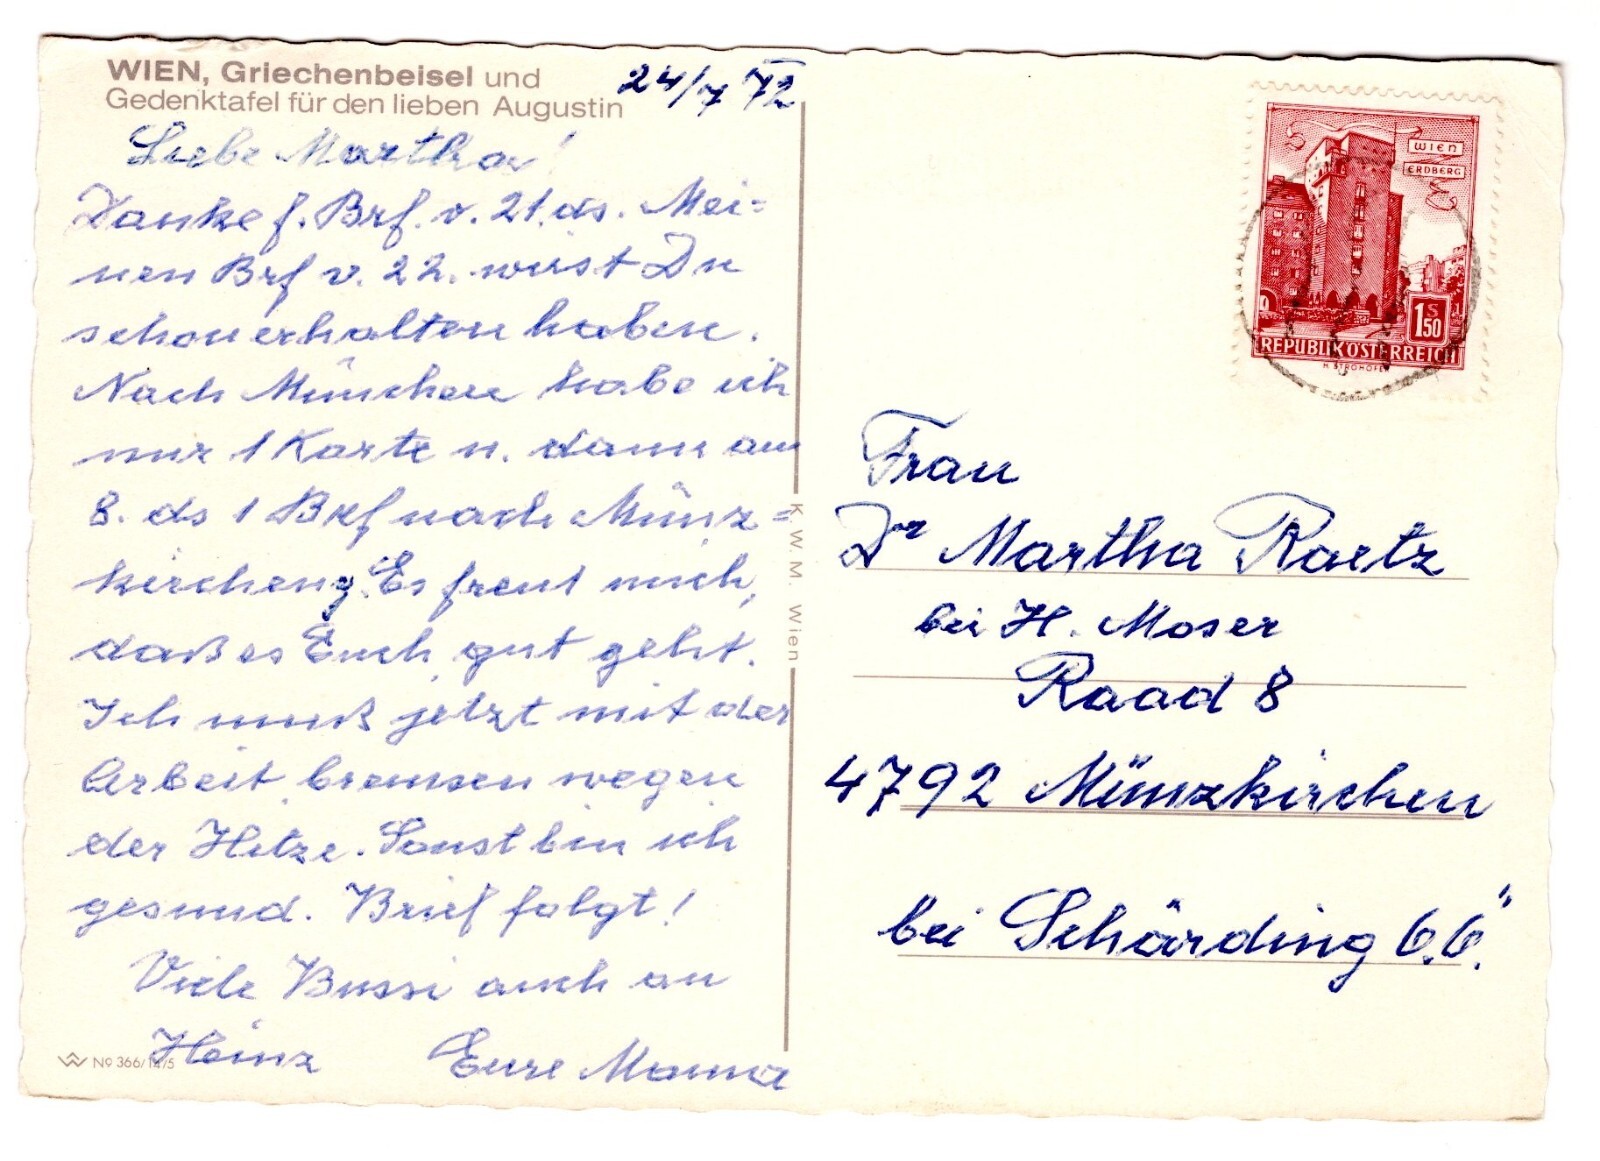 WIEN, Griechenbeisel und
Gedenktafel für den lieben Augustin
24/7 72
Liebe Martha!
Danke f. Brf. v. 21. ds. Mei=
nen Brf v. 22. wirst Du
schon erhalten haben.
Nach München habe ich
nur 1 Karte u. dann am
8. ds 1 Brf nach Münz=
kirchen. Es freut mich,
daß es Euch gut geht.
Ich muß jetzt mit der
Arbeit bremsen wegen
der Hitze. Sonst bin ich
gesund. Brief folgt!
Viele Bussi auch an
Heinz Eure Mama
No 366/14/5
K.W.M. Wien
WIEN
ERDBERG
1S50
REPUBLIK ÖSTERREICH
H. STROHOFER
Frau
Dr Martha Raetz
bei H. Moser
Raad 8
4792 Münzkirchen
bei Schärding O.Ö.